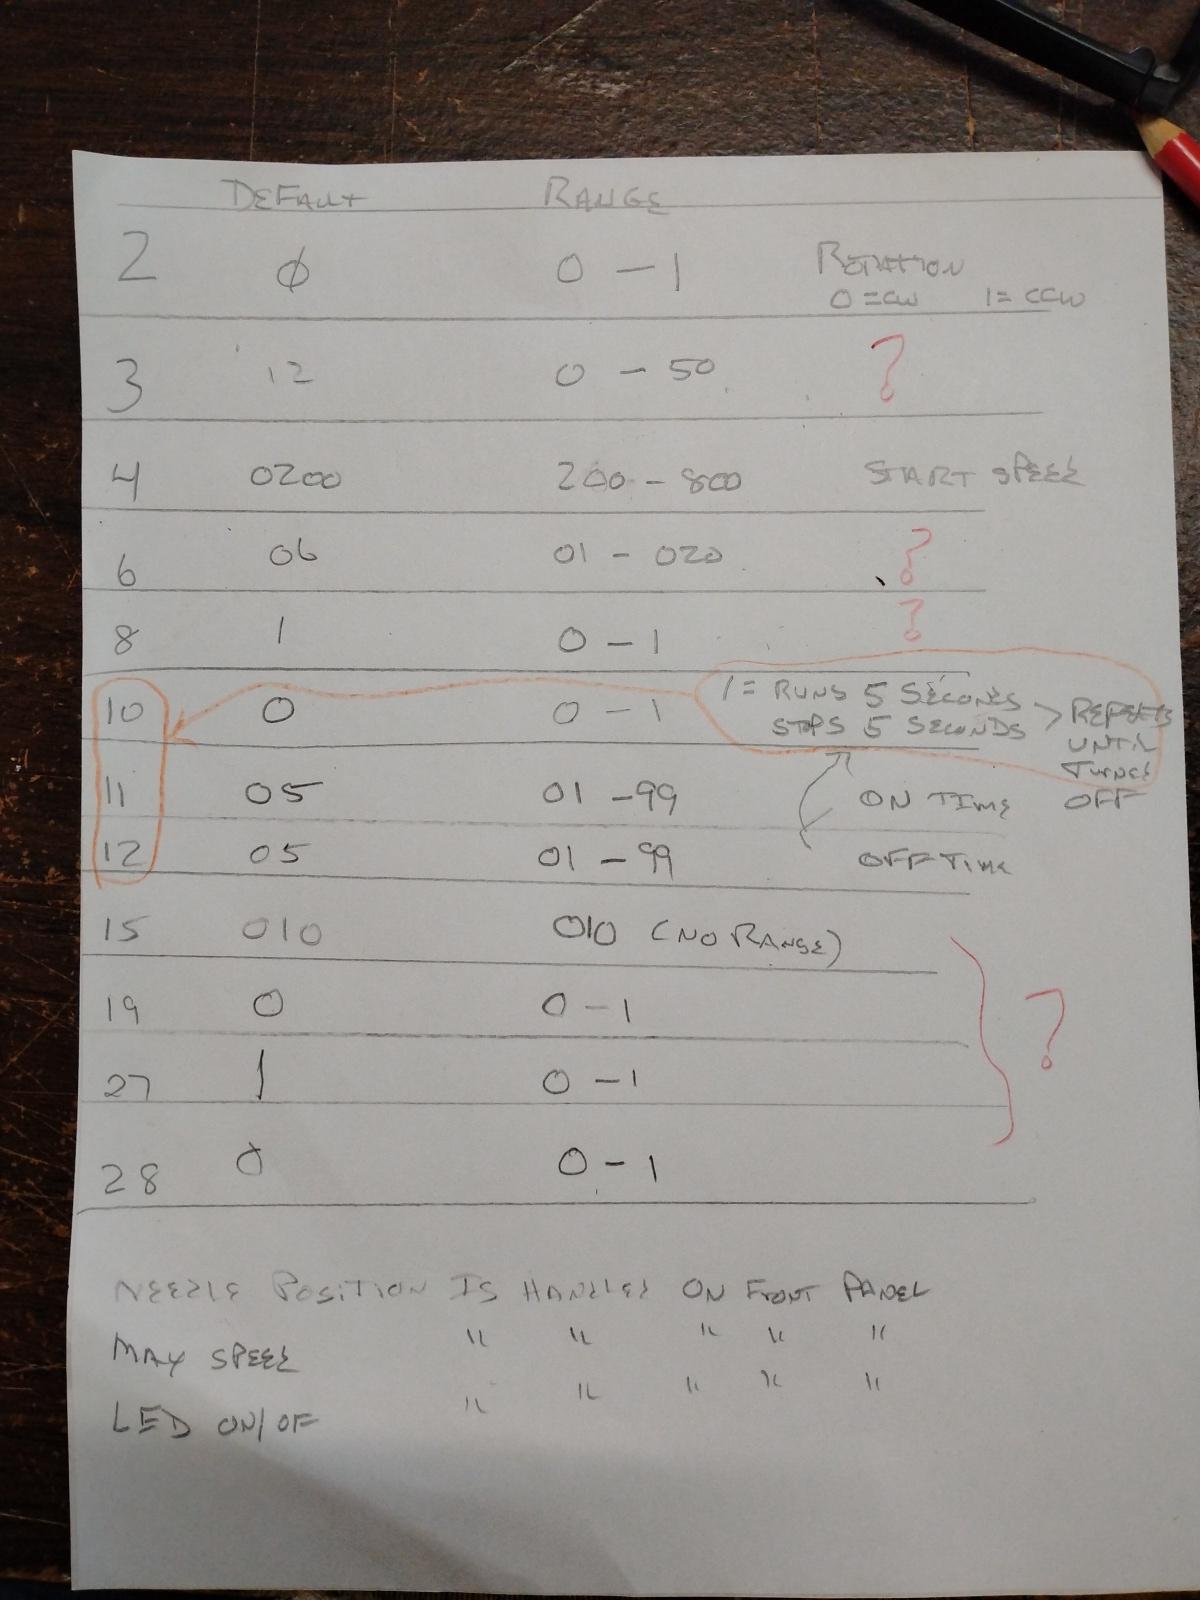 DEFAULT RANGE
2 0 0 - 1 ROTATION
0 = CW 1 = CCW
3 12 0 - 50 ?
4 0200 200 - 800 START SPEED
6 06 01 - 020 ?
8 1 0 - 1 ?
10 0 0 - 1 1 = RUNS 5 SECONDS
STOPS 5 SECONDS > REPEATS
UNTIL
TURNED
OFF
11 05 01 - 99 ON TIME
12 05 01 - 99 OFF TIME
15 010 010 (NO RANGE)
19 0 0 - 1 ?
27 1 0 - 1
28 0 0 - 1
NEEDLE POSITION IS HANDLED ON FRONT PANEL
MAX SPEED " " " " "
LED ON/OF " " " " "